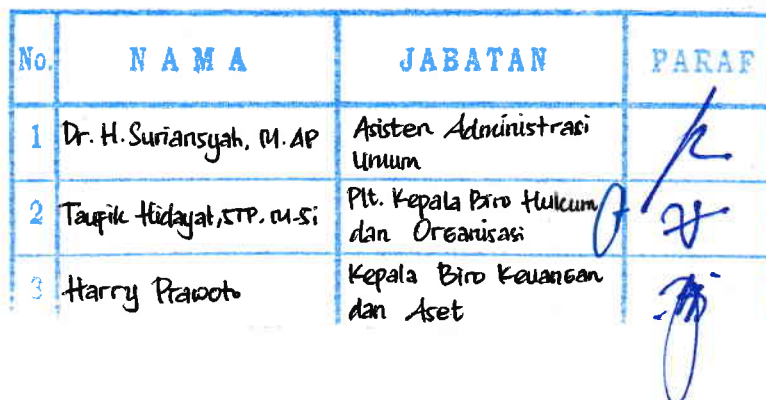 No. NAMA JABATAN PARAF
1 Dr. H. Suriansyah, M.AP Asisten Administrasi
Umum
2 Taufik Hidayat, STP. M.Si Plt. Kepala Biro Hukum
dan Organisasi
3 Harry Prawoto Kepala Biro Keuangan
dan Aset